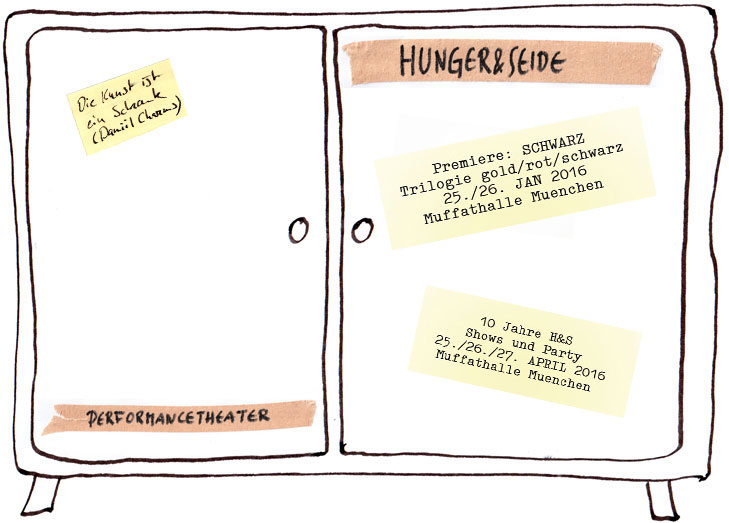 Die Kunst ist
ein Schrank
(Daniil Charms)
PERFORMANCETHEATER
HUNGER&SEIDE
Premiere: SCHWARZ
Trilogie gold/rot/schwarz
25./26. JAN 2016
Muffathalle Muenchen
10 Jahre H&S
Shows und Party
25./26./27. APRIL 2016
Muffathalle Muenchen